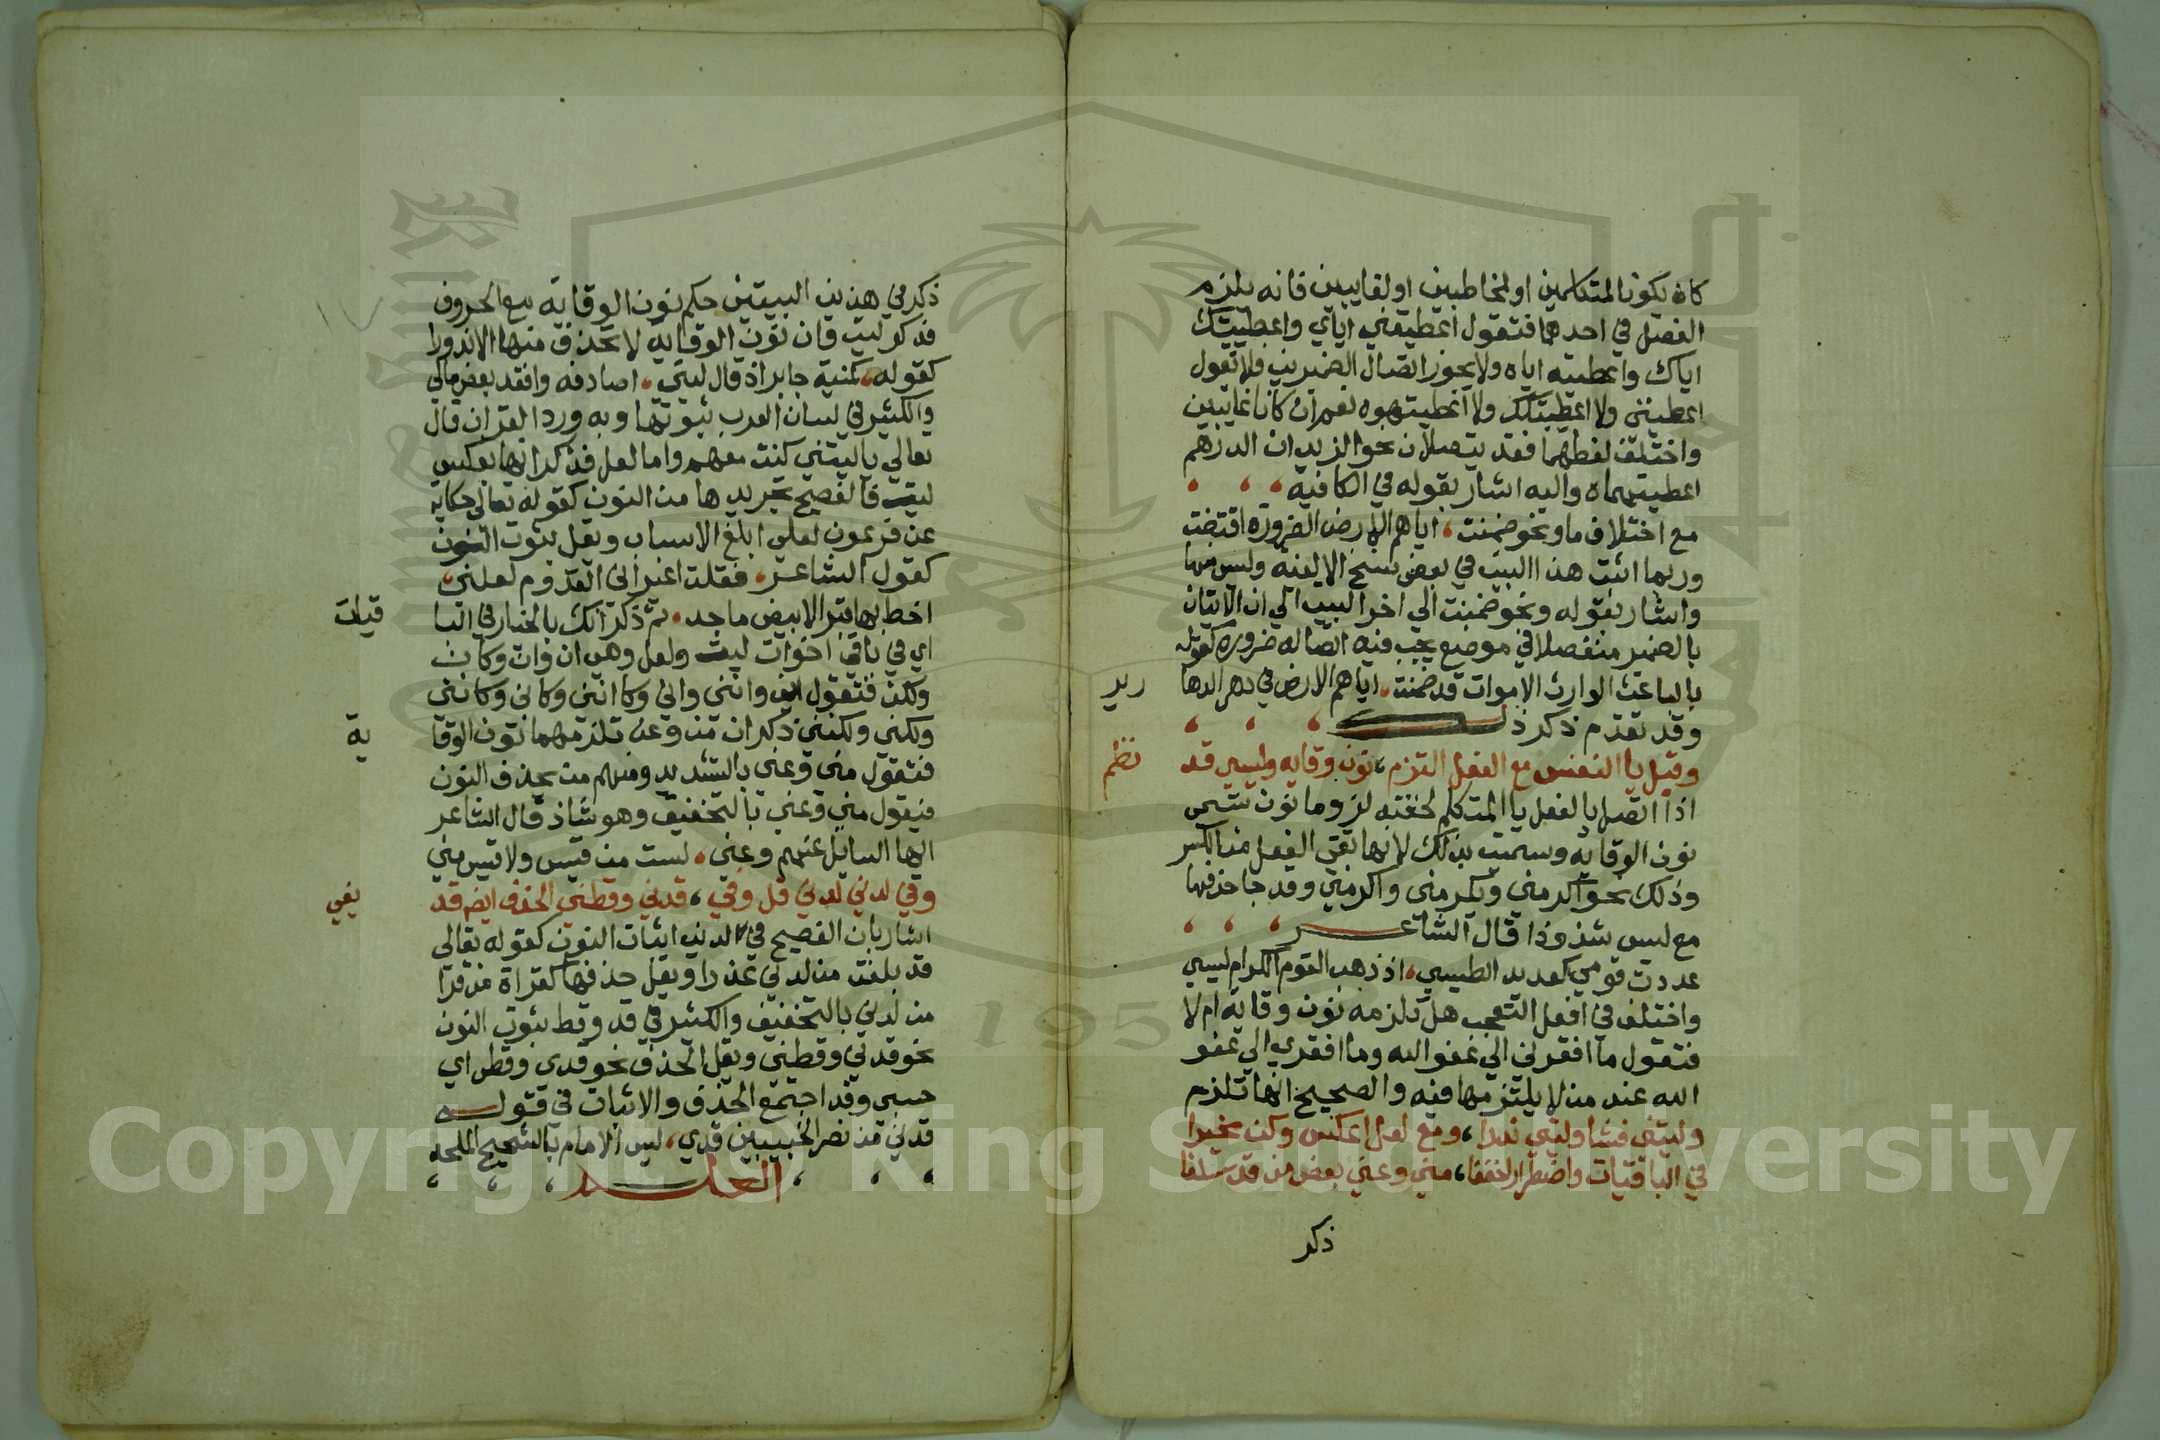 كان يكونا لمتكلمين او لمخاطبين او لغايبين فانه يلزم
الفصل في احدهما فتقول اعطيتني اياي واعطيتك
اياك واعطيته اياه ولا يجوز اتصال الضميرين فلا تقول
اعطيتنني ولا اعطيتكك ولا اعطيتهوه نعم ان كانا غايبين
واختلف لفظهما فقد يتصلان نحو الزيدان الدرهم
اعطيتهماه واليه اشار بقوله في الكافيه
مع اختلاف ما ونحو ضمنت، اياهم الارض الضرورة اقتضت
وربما اثبت هذا البيت في بعض نسخ الالفيه وليس منها
واشار بقوله ونحو ضمنت الي اخر البيت الي ان الاتيان
بالضمير منفصلا في موضع يجب فيه اتصاله ضرورة كقوله
بالباعث الوارث الاموات قد ضمنت، اياهم الارض في دهر الدها
رير
وقد تقدم ذكر ذلك
وقبل يا النفس مع الفعل التزم، نون وقايه وليسي قد
نظم
اذا اتصل بالفعل يا المتكلم لحقته لزوما نون تسمى
نون الوقايه وسميت بذلك لانها تقي الفعل من الكسر
وذلك نحو اكرمني ويكرمني واكرمني وقد جا حذفها
مع ليس شذوذا قال الشاعر
عددت قومي كعديد الطيسي، اذ ذهب القوم الكرام ليسي
واختلف في افعل التعجب هل تلزمه نون وقاية ام لا
فتقول ما افقرني الي عفو الله وما افقري الي عفو
الله عند من لا يلتزمها فيه والصحيح انها تلزم
وليتني فشا وليتي ندرا، ومع لعل اعكس وكن مخيرا
في الباقيات واضطرارا خففا، مني وعني بعض من قد سلفا
ذكر
ذكر في هذين البيتين حكم نون الوقاية مع الحروف
فذكر ليت فان نون الوقاية لا تحذف منها الا ندورا
كقوله، كمنية جابر اذ قال ليتي، اصادفه وافقد بعض مالي
والكثير في لسان العرب ثبوتها وبه ورد القران قال
تعالي ياليتني كنت معهم واما لعل فذكر انها بعكس
ليت فالفصيح تجريدها من النون كقوله تعالى حكاية
عن فرعون لعلي ابلغ الاسباب ويقل ثبوت النون
كقول الشاعر، فقلت اعيراني القدوم لعلني،
اخط بها قبرا لابيض ماجد، ثم ذكر انك بالخيار في البا
قيات
اي في باقي اخوات ليت ولعل وهي ان وان وكان
ولكن فتقول اني وانني واني وكانني وكاني وكانني
ولكني ولكنني ذكر ان من وعن تلزمهما نون الوقا
ية
فتقول مني وعني بالتشديد ومنهم من يحذف النون
فيقول مني وعني بالتخفيف وهو شاذ قال الشاعر
ايها السايل عنهم وعني، لست من قيس ولا قيس مني
وفي لدني لدني قل وفي، قدني وقطني الحذف ايضا قد
يفي
اشار بان الفصيح في لدني اثبات النون كقوله تعالى
قد بلغت من لدني عذرا ويقل حذفها كقراة من قرا
من لدني بالتخفيف والكثير في قد وقط ثبوت النون
نحو قدني وقطني ويقل الحذف نحو قدي وقطي اي
حسبي وقد اجتمع الحذف والاثبات في قوله
قدني من نصر الخبيبين قدي، ليس الامام بالشحيح الملحد
العلم